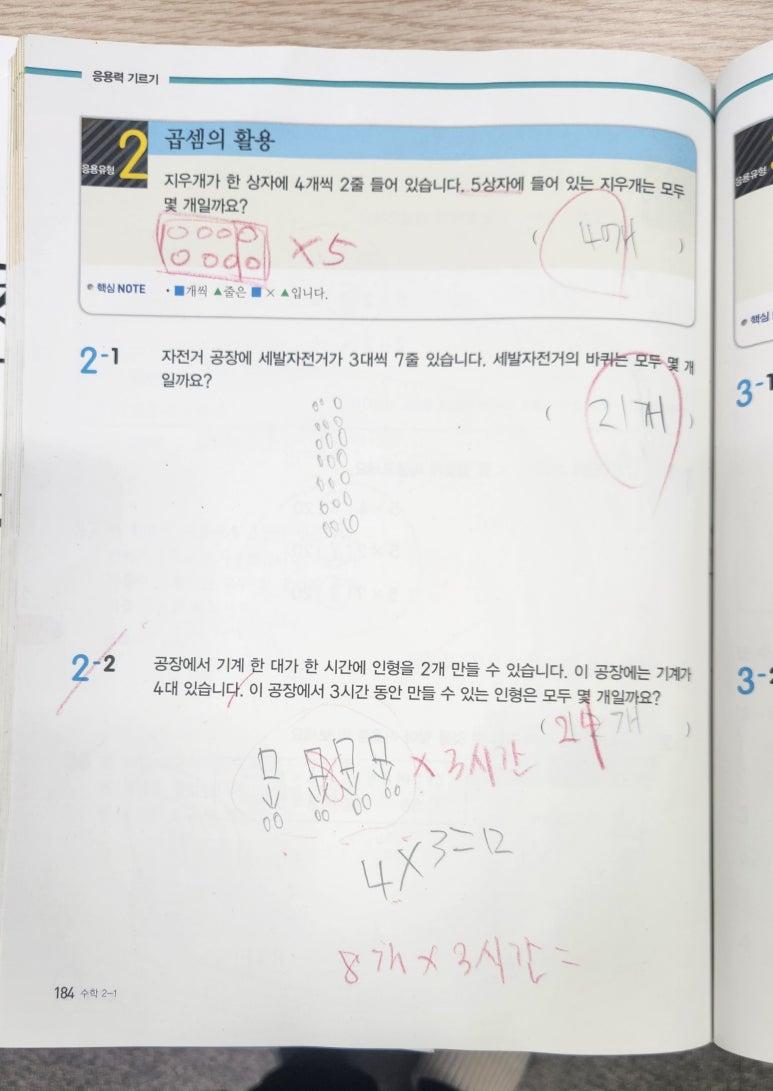 응용력 기르기
응용유형 2 곱셈의 활용
지우개가 한 상자에 4개씩 2줄 들어 있습니다. 5상자에 들어 있는 지우개는 모두
몇 개일까요?
×5
( 40개 )
핵심 NOTE • ■개씩 ▲줄은 ■ × ▲입니다.
2-1 자전거 공장에 세발자전거가 3대씩 7줄 있습니다. 세발자전거의 바퀴는 모두 몇 개
일까요?
( 21개 )
2-2 공장에서 기계 한 대가 한 시간에 인형을 2개 만들 수 있습니다. 이 공장에는 기계가
4대 있습니다. 이 공장에서 3시간 동안 만들 수 있는 인형은 모두 몇 개일까요?
( 24개 )
× 3시간
4×3=12
8개×3시간=
184 수학 2-1
응용유형
핵심
3-1
3-2